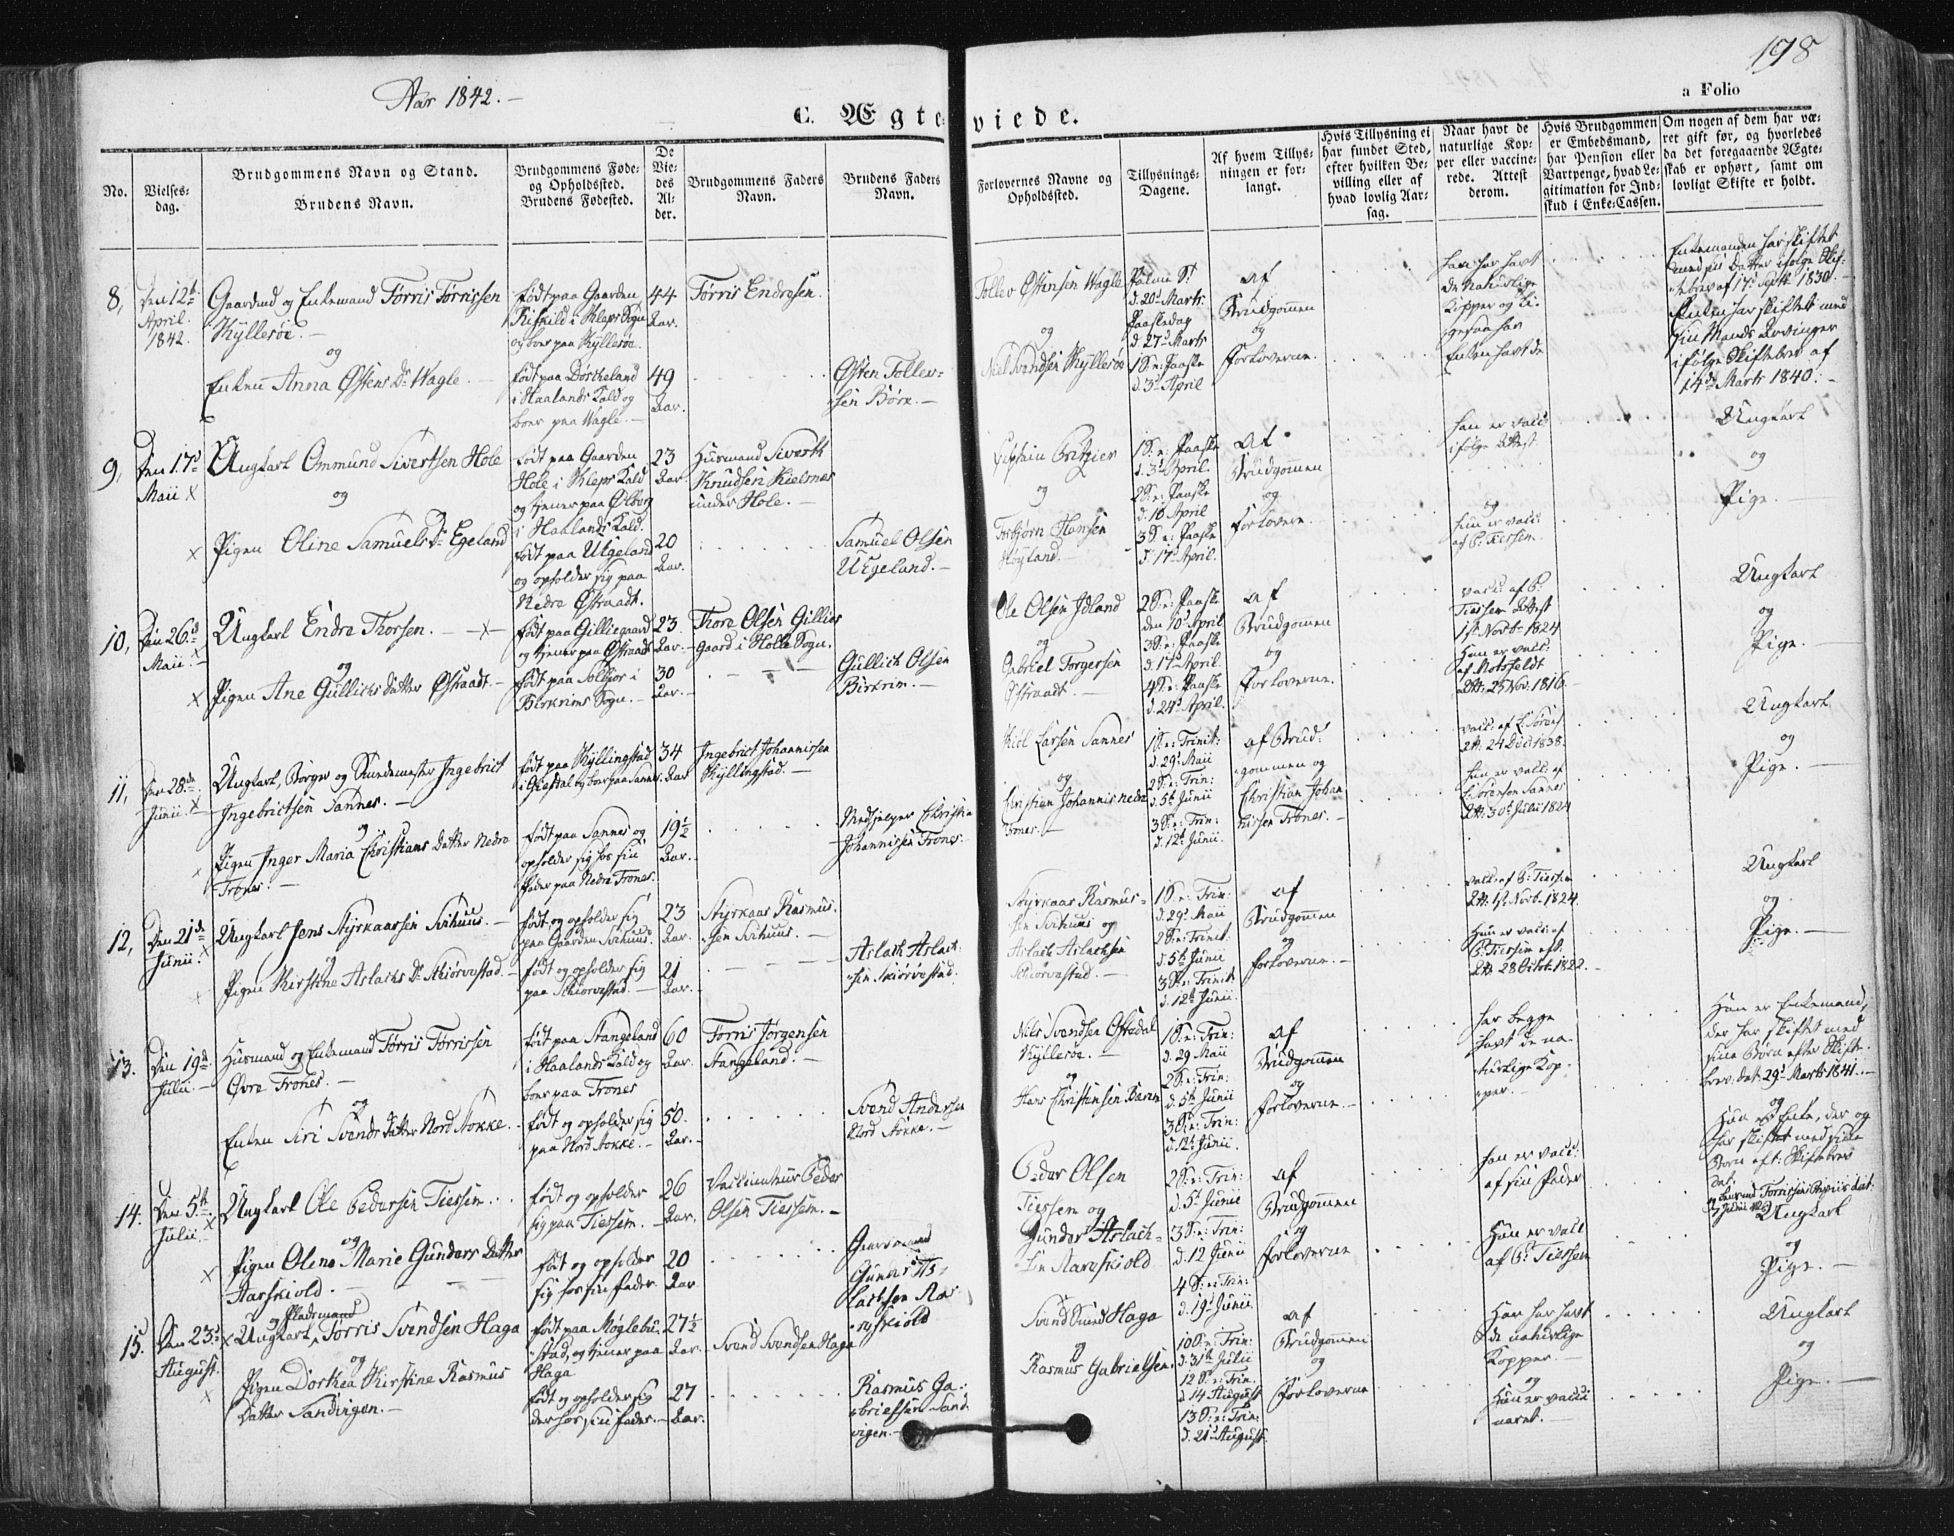 198
Aar 1842.-
C. Ægteviede.
a Folio
No.
Vielses-
dag.
Brudgommens Navn og Stand.
Brudens Navn.
Brudgommens Føde-
og Opholdssted.
Brudens Fødested.
De
Vie-
des
Al-
der.
Brudgommens Faders
Navn.
Brudens Faders
Navn.
Forlovernes Navne og
Opholdssted.
Tillysnings-
Dagene.
Af hvem Tillys-
ningen er for-
langt.
Hvis Tillysning ei
har fundet Sted,
efter hvilken Be-
villing eller af
hvad lovlig Aar-
sag.
Naar havt de
naturlige Kop-
per eller vaccine-
rede. Attest
derom.
Hvis Brudgommen
er Embedsmand,
har Pension eller
Vartpenge, hvad Le-
gitimation for Ind-
skud i Enke-Cassen.
Om nogen af dem har væ-
ret gift før, og hvorledes
da det foregaaende Ægte-
skab er ophørt, samt om
lovligt Skifte er holdt.
8,
Den 12te
April
1842.
Gaardmd og Enkemand Torris Torrissen
Kyllesøe.-
og
Enken Anna Østens Dr Wagle.
født paa Gaarden
i Kleps Sogn
og boer paa Kyllesøe.
født paa
i Haalands Kald og
boer paa Wagle.-
44
Aar.
49
Aar.
Torris Endresen.
Østen Toller-
sen Børe.-
Tollev Østensen Wagle
og
Niels Svendsen Kyllesøe
Palme S:
d. 20d Marts
Paaskedag
d. 27d Marts
1 S: e: Paaske
d. 3d April
af
Brudgommen
og
Forloverne.
han har havt
de naturlige
Kopper og li-
gesaa har
Enken havt de
Enkemanden har skiftet
med sin Datter ifølge Skif-
tebrev af 17d Septr 1830.-
Enken har skiftet med
sin Mands Arvinger
ifølge Skiftebrev af
14d Marts 1840.-
9,
Den 17d
Maii x
Ungkarl Ommund Sivertsen Hole
og
x Pigen Oline Samuels Dr Egeland
født paa Gaarden
Hole i Kleps Kald
og tjener paa Ølborg
i Haalands Kald.
født paa Ulgeland
og opholder sig paa
Nedre Østraadt.
23
Aar
20
Aar.
Husmand Siverth
Knudsen Kielsnes
under Hole.-
Samuel Olsen
Ulgeland.-
og
Torbjørn Hansen
Høyland.-
1 S: e: Paaske
d. 3d April.
2 S: e: Paaske
d. 10 April
3 S: e: Paaske
d. 17d April.
af
Brudgommen
og
Forlovere.
han er vacc:
ifølge Attest
og
hun er vacc:
af P: Tiessem.
Ungkarl
og
Pige.-
10,
Den 26d
Maii.-
Ungkarl Endre Thorsen.-x-
og
x Pigen Ane Gullichs Datter Østraadt.-
født paa Gilliegaard
og tjener paa Østraadt
født paa Solbjor i
Birkrims Sogn.-
23
Aar.-
30
Aar.-
Thore Olsen Gillies
gaard i Holle Sogn.
Gullich Olsen
Birkrim.-
Ole Olsen Idland
og
Gabriel Torgersen
Østraadt.-
2 S: e: Paaske
den 10d April
3 S: e: Paaske
d. 17d April.
4 S: e: Paaske
d. 24d April.
af
Brudgommen
og
Forloverne.
vacc: af P.
Tiessem Attest
1st Novbr 1824
Hun er vacc:
af Motzfeldt
Att: 25 Nov: 1816.
Ungkarl
og
Pige.-
11,
Den 28de
Junii x
Ungkarl, Borger og Ingebrict
Ingebrictsen Sannes.-
og
x Pigen Inger Maria Christians Datter Nedre
Trones.-
født paa Kyllingstad
i Giestal og boer paa Sannes.
født paa Sannes og
opholder sig hos sin
Fader paa Nedre Trones.
34
Aar
19½
Aar.
Ingebrict Johannissen
Kyllingstad.-
Medhjelper Christia
Johannissen Trones.-
Kiel Larsen Sannes
og
Christian Johannis nedre
Trones.-
1 S: e: Trinit:
d. 29d Maii
2 S: e: Trin:
d. 5te Junii
3 S: e: Trin:
d. 12te Junii.
af Brud-
gommen og
Christian Johan
nissen Trones.-
vacc: af
Att. 24 Dec: 1838.
hun er vacc: af
Sørensen Sannes
Att: 30te Julii 1824
Ungkarl
og
Pige.-
12,
Den 21de
Junii x
Ungkarl Jens Styrkaarsen Sørhuus.-
og
x Pigen Kirstine Aslachs Dr Schiørvestad.-
født og opholder sig
paa Gaarden Sørhuus.
født og opholder sig
paa Schiørvestad.-
23
Aar.
21
Aar.
Styrkaar Rasmus-
sen Sørhuus.-
Aslach Aslach-
sen Skiørvestad.
Styrkaar Rasmus-
sen Sørhuus og
Aslach Aslachsen
Schiørvestad.-
1 S: e: Trin:
d. 29d Maii
2 S: e: Trinit:
d. 5te Junii
3 S: e: Trinit:
d. 12te Junii.
af
Brudgommen
og
Forloverne.-
vacc: af P: Tiessem
Att. 1st Novb: 1824.
Hun er vacc: af
P: Tiessem eft:
Att: 28 Octob: 1822.
Ungkarl
og
Pige.-
13.
Den 19de
Julii.-
Husmand og Enkemand Torris Torrissen
Øvre Trones.-
og
Enken Siri Svends Datter Nord Stokke.-
født paa Stangeland
i Haalands Kald og
boer paa Trones
født og opholder sig
paa Nord Stokke.-
60
Aar.
50.
Aar.-
Torris Jørgensen
Stangeland.-
Svend Andersen
Nord Stokke.-
Nils Svendsen
Kyllesøe.-
og
Hans Christensen
1 S: e: Trin:
d. 29 Maii
2 S: e: Trin:
d. 5te Junii
3 S: e: Trin:
d. 12te Junii
af
Brudgommen
og
Forloverne.-
har begge
havt de na-
turlige Kop-
per.-
Han er Enkemand,
der har skiftet med
sine Børn efter Skifte-
brev dat: 29d Marts 1841.-
og
Hun er Enke, der og
har skiftet med sine
Børn eft: Skiftebrev
dat:
14.
Den 5te
Julii x
Ungkarl Ole Pedersen Tiessem..
og
x Pigen Olene Marie Gunders Datter
Aarskiold.-
født og opholder
sig paa Tiessem.-
født og opholder
sig hos sin Fader.
26
Aar.
20
Aar
Peder
Olsen Tiessem.-
Gaardmand
Gunder As-
lachsen Aar-
skiold
Peder Olsen
Tiessem og
Gunder Aslach-
sen Aarskiold
2 S: e: Trin:
d. 5te Junii
3 S: e: Trin:
d. 12 Junii
4 S: e: Trin:
d. 19d Junii
af
Brudgommen
og
Forloverne
han er vacc:
af sin Fader
Hun er vacc
af P: Tiessem
Ungkarl
og
Pige.-
15.
Den 23d
August
og Pladsmand
x Ungkarl Torris Svendsen Haga
og
x Pigen Dorthea Kirstine Rasmus
Datter Sandvigen.-
født paa Møglebu-
stad, og tjener paa
Haga
født og opholder sig
der hos sin Fader.-
27½
Aar.
27
Aar.
Svend Svendsen Haga
Rasmus Ga-
brielsen Sand
vigen.-
Svend Haga
og
Rasmus Gabrielsen.
10 S: e: Trin:
d. 31te Julii
12 S: e: Trin.
d. 14 August
13 S: e: Trin:
d. 21d August.
af
Brudgommen
og
Forloverne
Han har havt
de naturlige
Kopper.-
og
Hun er vacci-
neret.-
Ungkarl
og
Pige.-